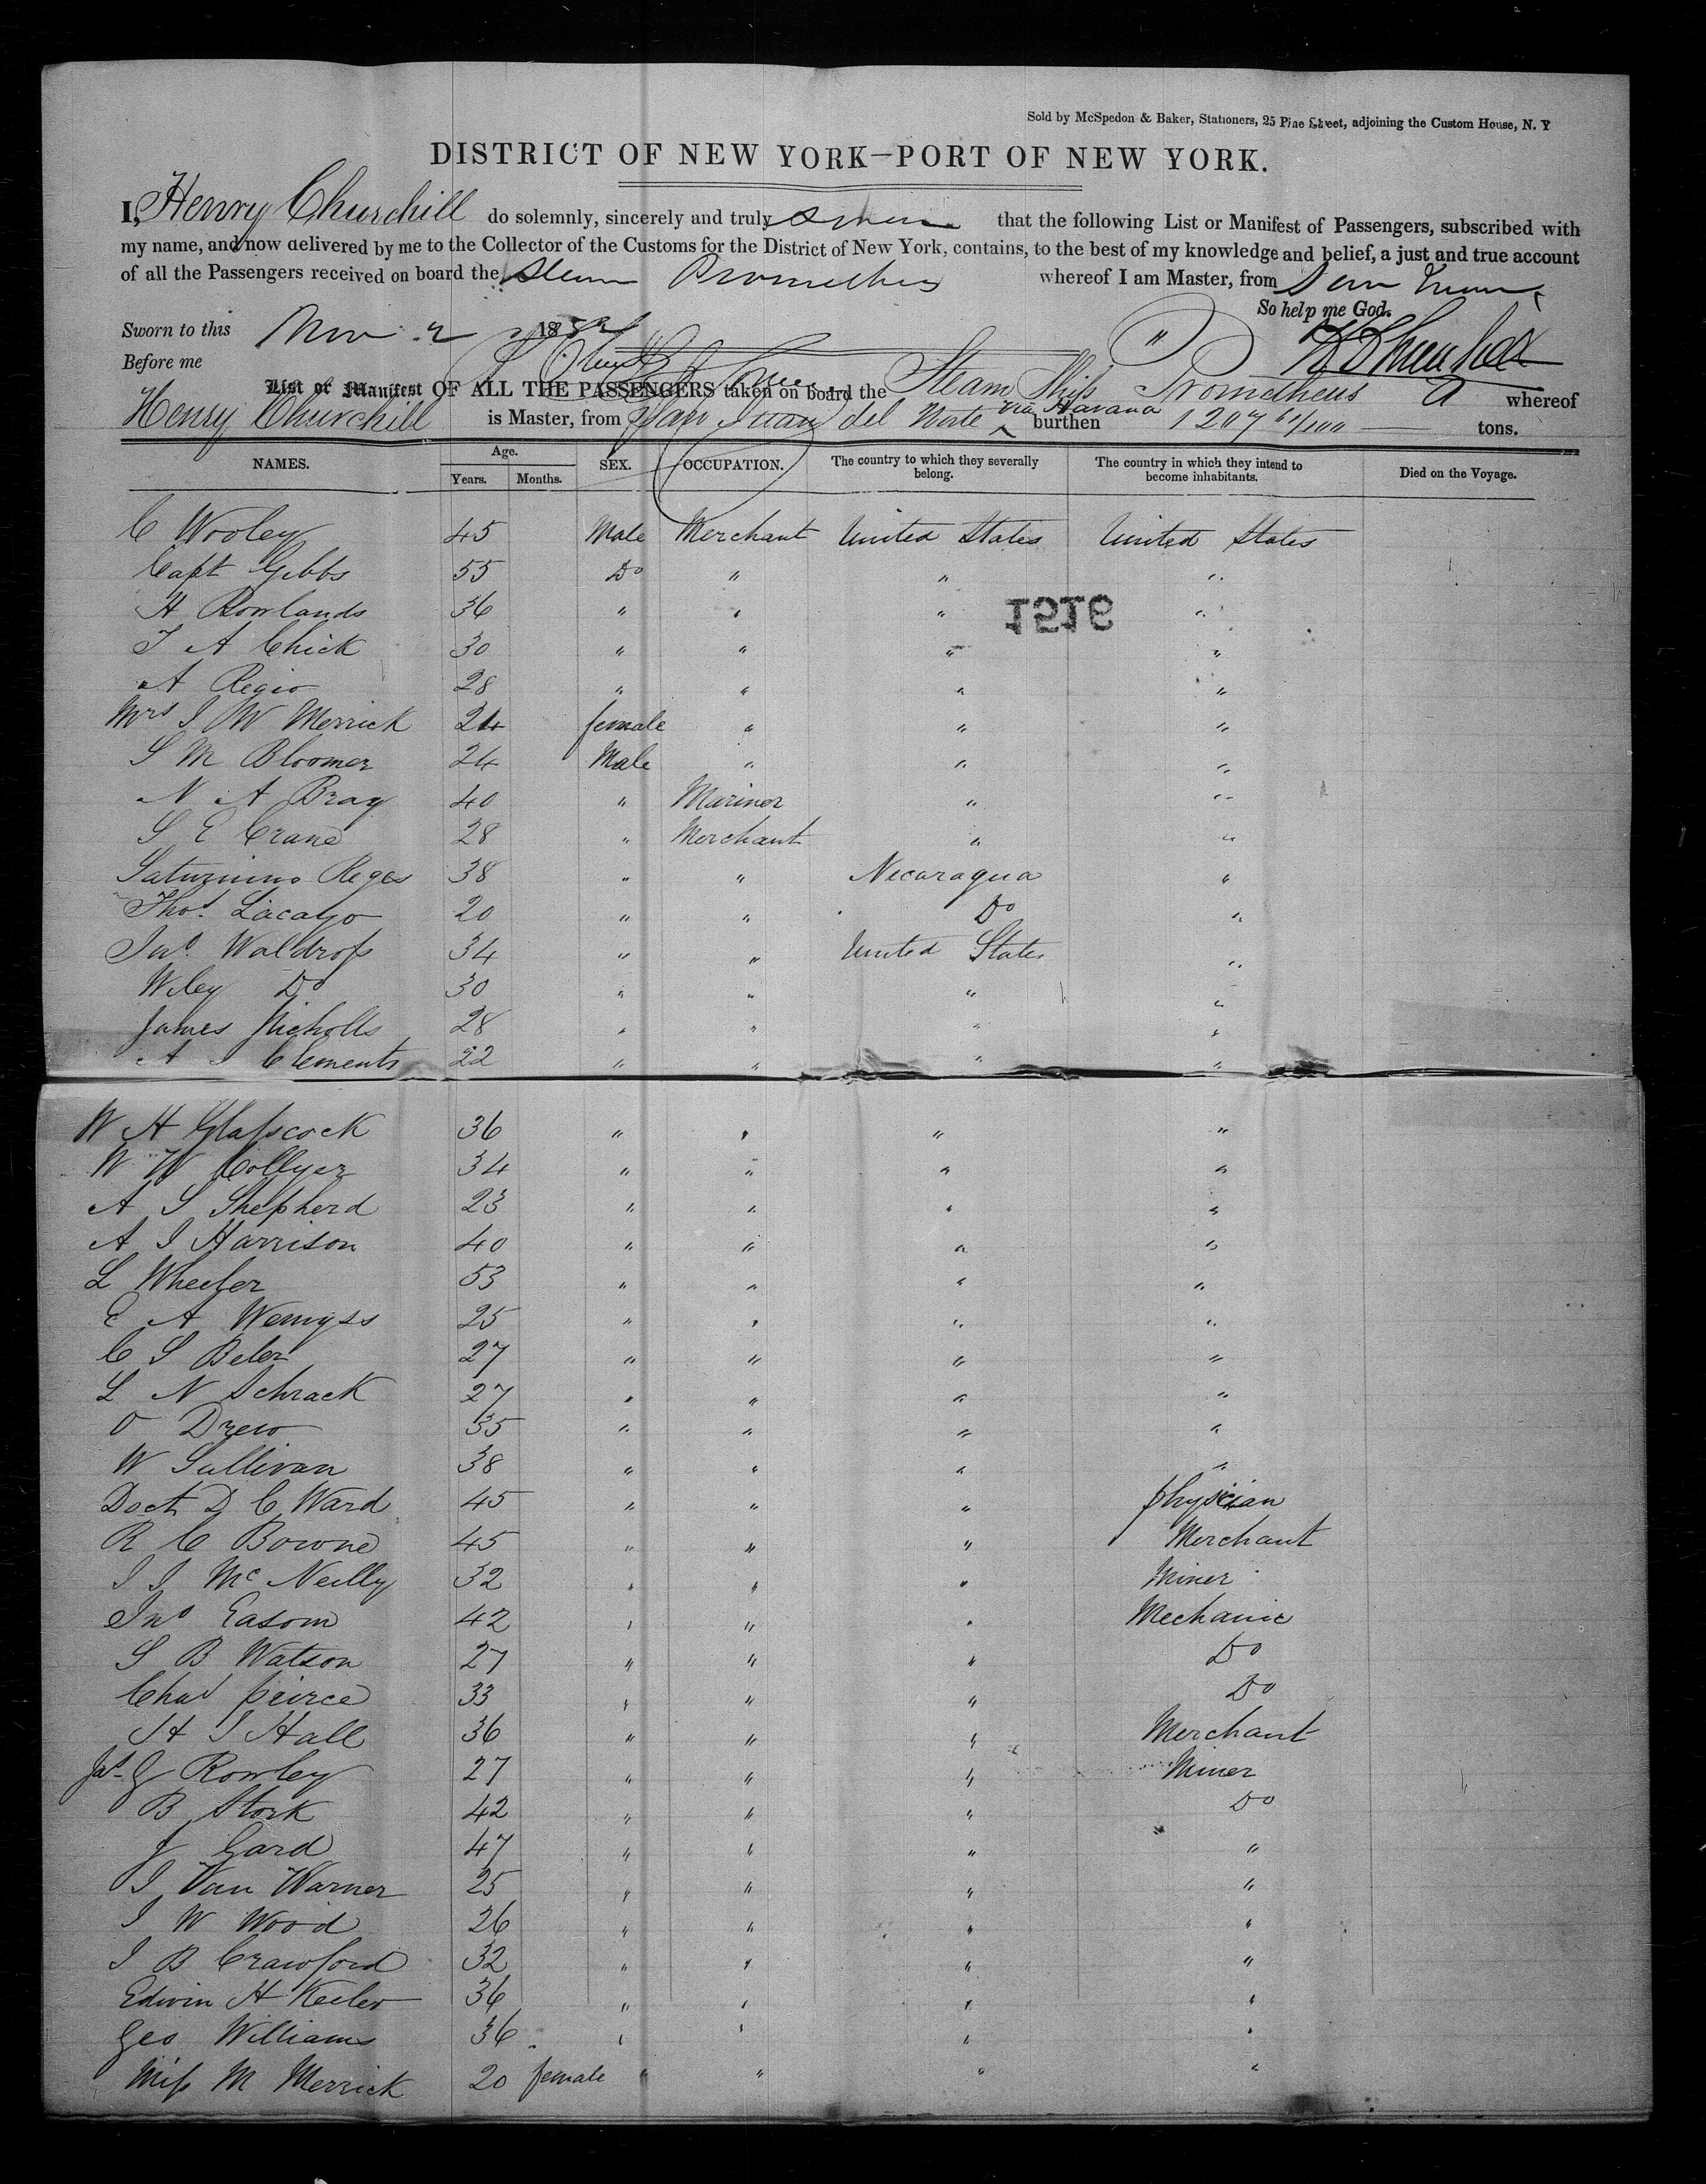 Sold by McSpedon & Baker, Stationers, 25 Pine Street, adjoining the Custom House, N. Y
DISTRICT OF NEW YORK—PORT OF NEW YORK.
I, Henry Churchill do solemnly, sincerely and truly swear that the following List or Manifest of Passengers, subscribed with
my name, and now delivered by me to the Collector of the Customs for the District of New York, contains, to the best of my knowledge and belief, a just and true account
of all the Passengers received on board the Steam Prometheus whereof I am Master, from San Juan
So help me God.
Sworn to this Nov 2 185
Before me
List or Manifest OF ALL THE PASSENGERS taken on board the Steam Ship Prometheus whereof
Henry Churchill is Master, from San Juan del Norte via Havana burthen 1207 61/100 tons.
NAMES. Age. Years. Months. SEX. OCCUPATION. The country to which they severally belong. The country in which they intend to become inhabitants. Died on the Voyage.
C Wooley 45 Male Merchant United States United States
Capt Gibbs 55 Do " " "
H Rowlands 36 " " " "
1516
J A Chick 30 " " " "
A Regio 28 " " " "
Mrs J W Merrick 24 female " " "
S M Bloomer 24 Male " " "
N A Bray 40 " Mariner " "
S E Crane 28 " Merchant " "
Saturnino Reges 38 " " Nicaragua "
Thos Lacayo 20 " " Do "
Jno Waldrop 34 " " United States "
Wiley Do 30 " " " "
James Nicholls 28 " " " "
A J Clements 22 " " " "
W H Glasscock 36 " " " "
W W Collyer 34 " " " "
A S Shepherd 23 " " " "
A J Harrison 40 " " " "
L Wheeler 53 " " " "
E A Wemyss 25 " " " "
C S Beler 27 " " " "
L N Schrack 27 " " " "
O Drew 35 " " " "
W Sullivan 38 " " " "
Doct D C Ward 45 " " " physician
R C Bowne 45 " " " Merchant
J J McNeilly 32 " " " Miner
Jno Easom 42 " " " Mechanic
S B Watson 27 " " " Do
Chas Peirce 33 " " " Do
H J Hall 36 " " " Merchant
Jas G Rowley 27 " " " Miner
B Stork 42 " " " Do
J Gard 47 " " " "
J Van Warner 25 " " " "
J W Wood 26 " " " "
J B Crawford 32 " " " "
Edwin H Keeler 36 " " " "
Geo Williams 36 " " " "
Miss M Merrick 20 female " " " "